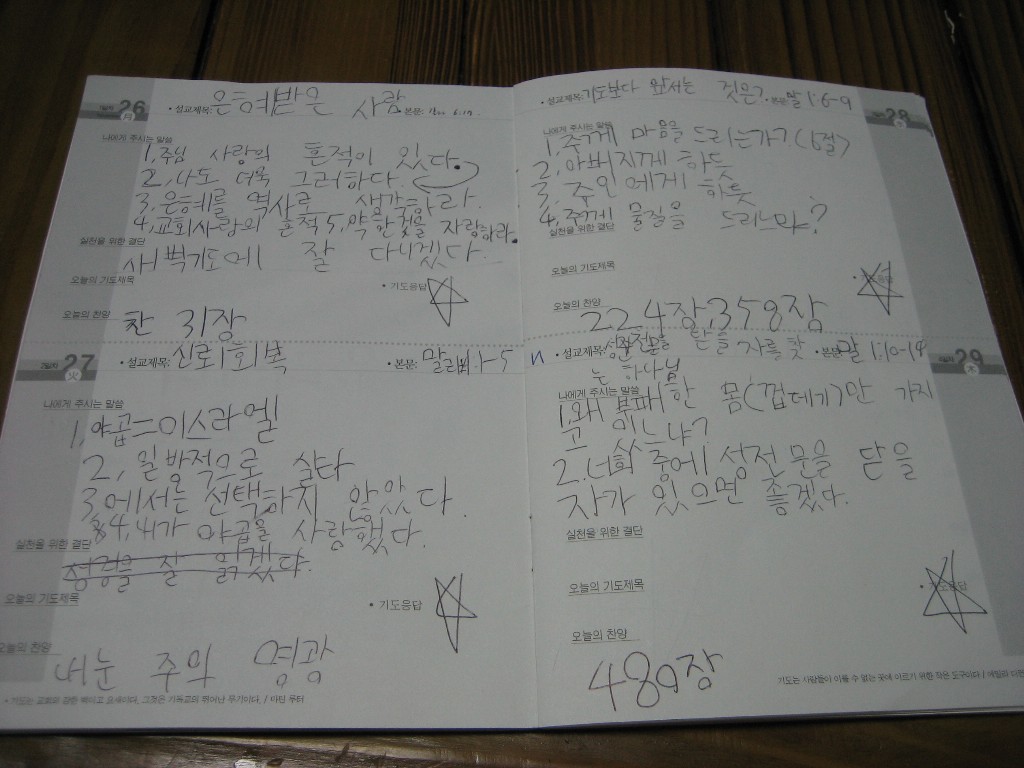 26
• 설교제목: 은혜받은 사람 • 본문: 6:17
나에게 주시는 말씀
1, 주님 사랑의 흔적이 있다.
2, 나도 더욱 그러하다.
3, 은혜를 역사로 생각하라.
4, 교회사랑의 흔적 5, 약한것을 자랑하라.
실천을 위한 결단
새벽기도에 잘 다니겠다.
오늘의 기도제목
• 기도응답
오늘의 찬양
찬 31장
27 火
• 설교제목: 신뢰회복 • 본문: 1-5
나에게 주시는 말씀
1, 야곱=이스라엘
2, 일방적으로 싫다
3, 에서는 선택하지 않았다.
4, 내가 야곱을 사랑했다.
실천을 위한 결단
성경을 잘 읽겠다.
오늘의 기도제목
• 기도응답
오늘의 찬양
내눈 주의 영광
• 기도는 교회의 강한 벽이고 요새이다. 그것은 기독교의 뛰어난 무기이다. / 마틴 루터
28
• 설교제목: 기도보다 앞서는 것은? • 본문: 말 1:6-9
나에게 주시는 말씀
1, 주께 마음을 드리는가? (6절)
2, 아버지께 하듯
3, 주인에게 하듯
4, 주께 물질을 드리느냐?
실천을 위한 결단
오늘의 기도제목
오늘의 찬양
224장, 358장
29 木
• 설교제목: 성전문을 닫을 자를 찾 • 본문: 말 1:10-14
는 하나님
나에게 주시는 말씀
1. 왜 부패한 몸(껍데기)만 가지
고 있느냐?
2. 너희 중에 성전 문을 닫을
자가 있으면 좋겠다.
실천을 위한 결단
오늘의 기도제목
오늘의 찬양
480장
기도는 사람들이 이를 수 없는 곳에 이르기 위한 작은 도구이다 /